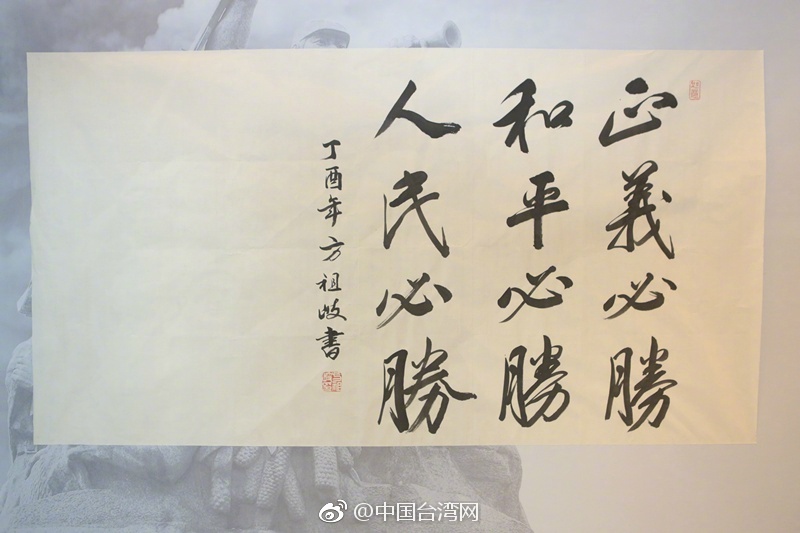 正義必勝
和平必勝
人民必勝
丁酉年方祖岐書
@中国台湾网